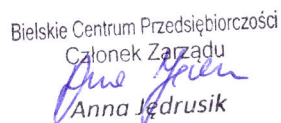 Bielskie Centrum Przedsiębiorczości
Członek Zarządu
Anna Jędrusik